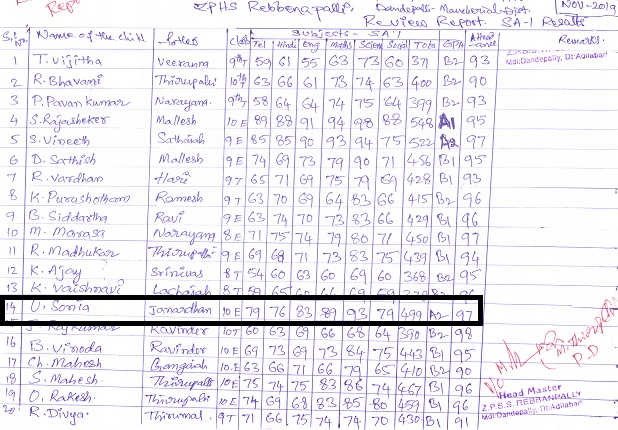 ZPHS Rebbenapalli, Dandepalli - Mancherial-Dist. NOV-2019
Review Report. SA-1 Results
Subjects - SA-1
S.No. Name of the child Father Class Tel Hindi Eng maths Scien Social Total GPA Atten-dance Remarks
Z.P.S.S. REBBANPALLY
Mdl:Dandepally, Dt:Adilabad
1 T. vijitha Veeranna 9th T 59 61 55 63 73 60 371 B2 93
2 R. Bhavani Thirupathi 10th T 63 66 61 73 74 63 400 B2 90
3 P. Pavan kumar Narayana 9th T 58 64 64 74 75 64 399 B2 93
4 S. Rajasheker Mallesh 10 E 89 88 91 94 98 88 548 A1 95
5 S. Vineeth Sathaiah 9 E 85 85 90 93 94 75 522 A2 97
6 D. Sathish Mallesh 9 E 74 69 73 79 90 71 456 B1 95
7 R. Vardhan Hari 9 T 65 71 69 75 79 69 428 B1 93
8 K. Purushotham Ramesh 9 T 63 70 69 64 83 66 415 B2 96
9 B. Siddartha Ravi 9 E 63 74 70 73 83 66 429 B1 96
10 M. Manasa Narayana 8 E 71 75 74 79 80 71 450 B1 97
11 R. Madhukar Thirupathi 9 E 69 68 71 73 83 75 439 B1 94
12 K. Ajay Srinivas 8 T 54 60 63 60 69 60 368 B2 95
13 K. Vaishnavi Lachaiah 8 T
14 U. Sonia Janardhan 10 E 79 76 83 89 93 79 499 A2 97
Rajkumar Ravinder 10 T 60 63 69 66 68 64 390 B2 98
16 B. Vinoda Ravinder 10 E 73 69 73 84 75 443 B1 95
17 Ch. Mahesh Gangaiah 10 E 63 66 71 66 79 65 410 B2 90
18 S. Mahesh Thirupathi 10 E 75 74 75 83 86 74 467 B1 96
19 O. Rakesh Thirupathi 10 E 74 69 68 83 85 80 459 B1 96
20 R. Divya Thirumal 9 T 71 66 75 74 74 70 430 B1 91
P.D
Head Master
Z.P.S.S. REBBANPALLY
Mdl:Dandepally, Dt:Adilabad